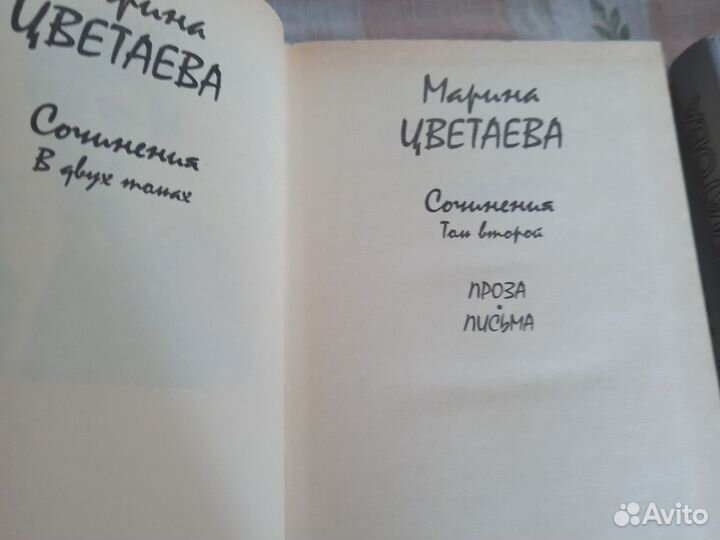 Марина
ЦВЕТАЕВА
Сочинения
В двух томах
Марина
ЦВЕТАЕВА
Сочинения
Том второй
ПРОЗА
ПИСЬМА
Avito